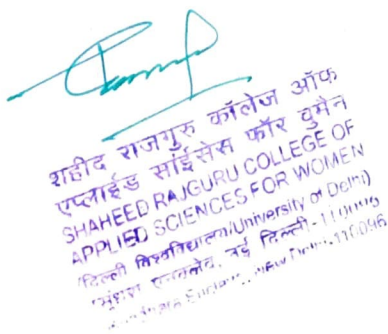 शहीद राजगुरु कॉलेज ऑफ
एप्लाईड साईंसेस फॉर वुमेन
SHAHEED RAJGURU COLLEGE OF
APPLIED SCIENCES FOR WOMEN
(दिल्ली विश्वविद्यालय/University of Delhi)
एन्क्लेव, नई दिल्ली-110096
New Delhi-110096